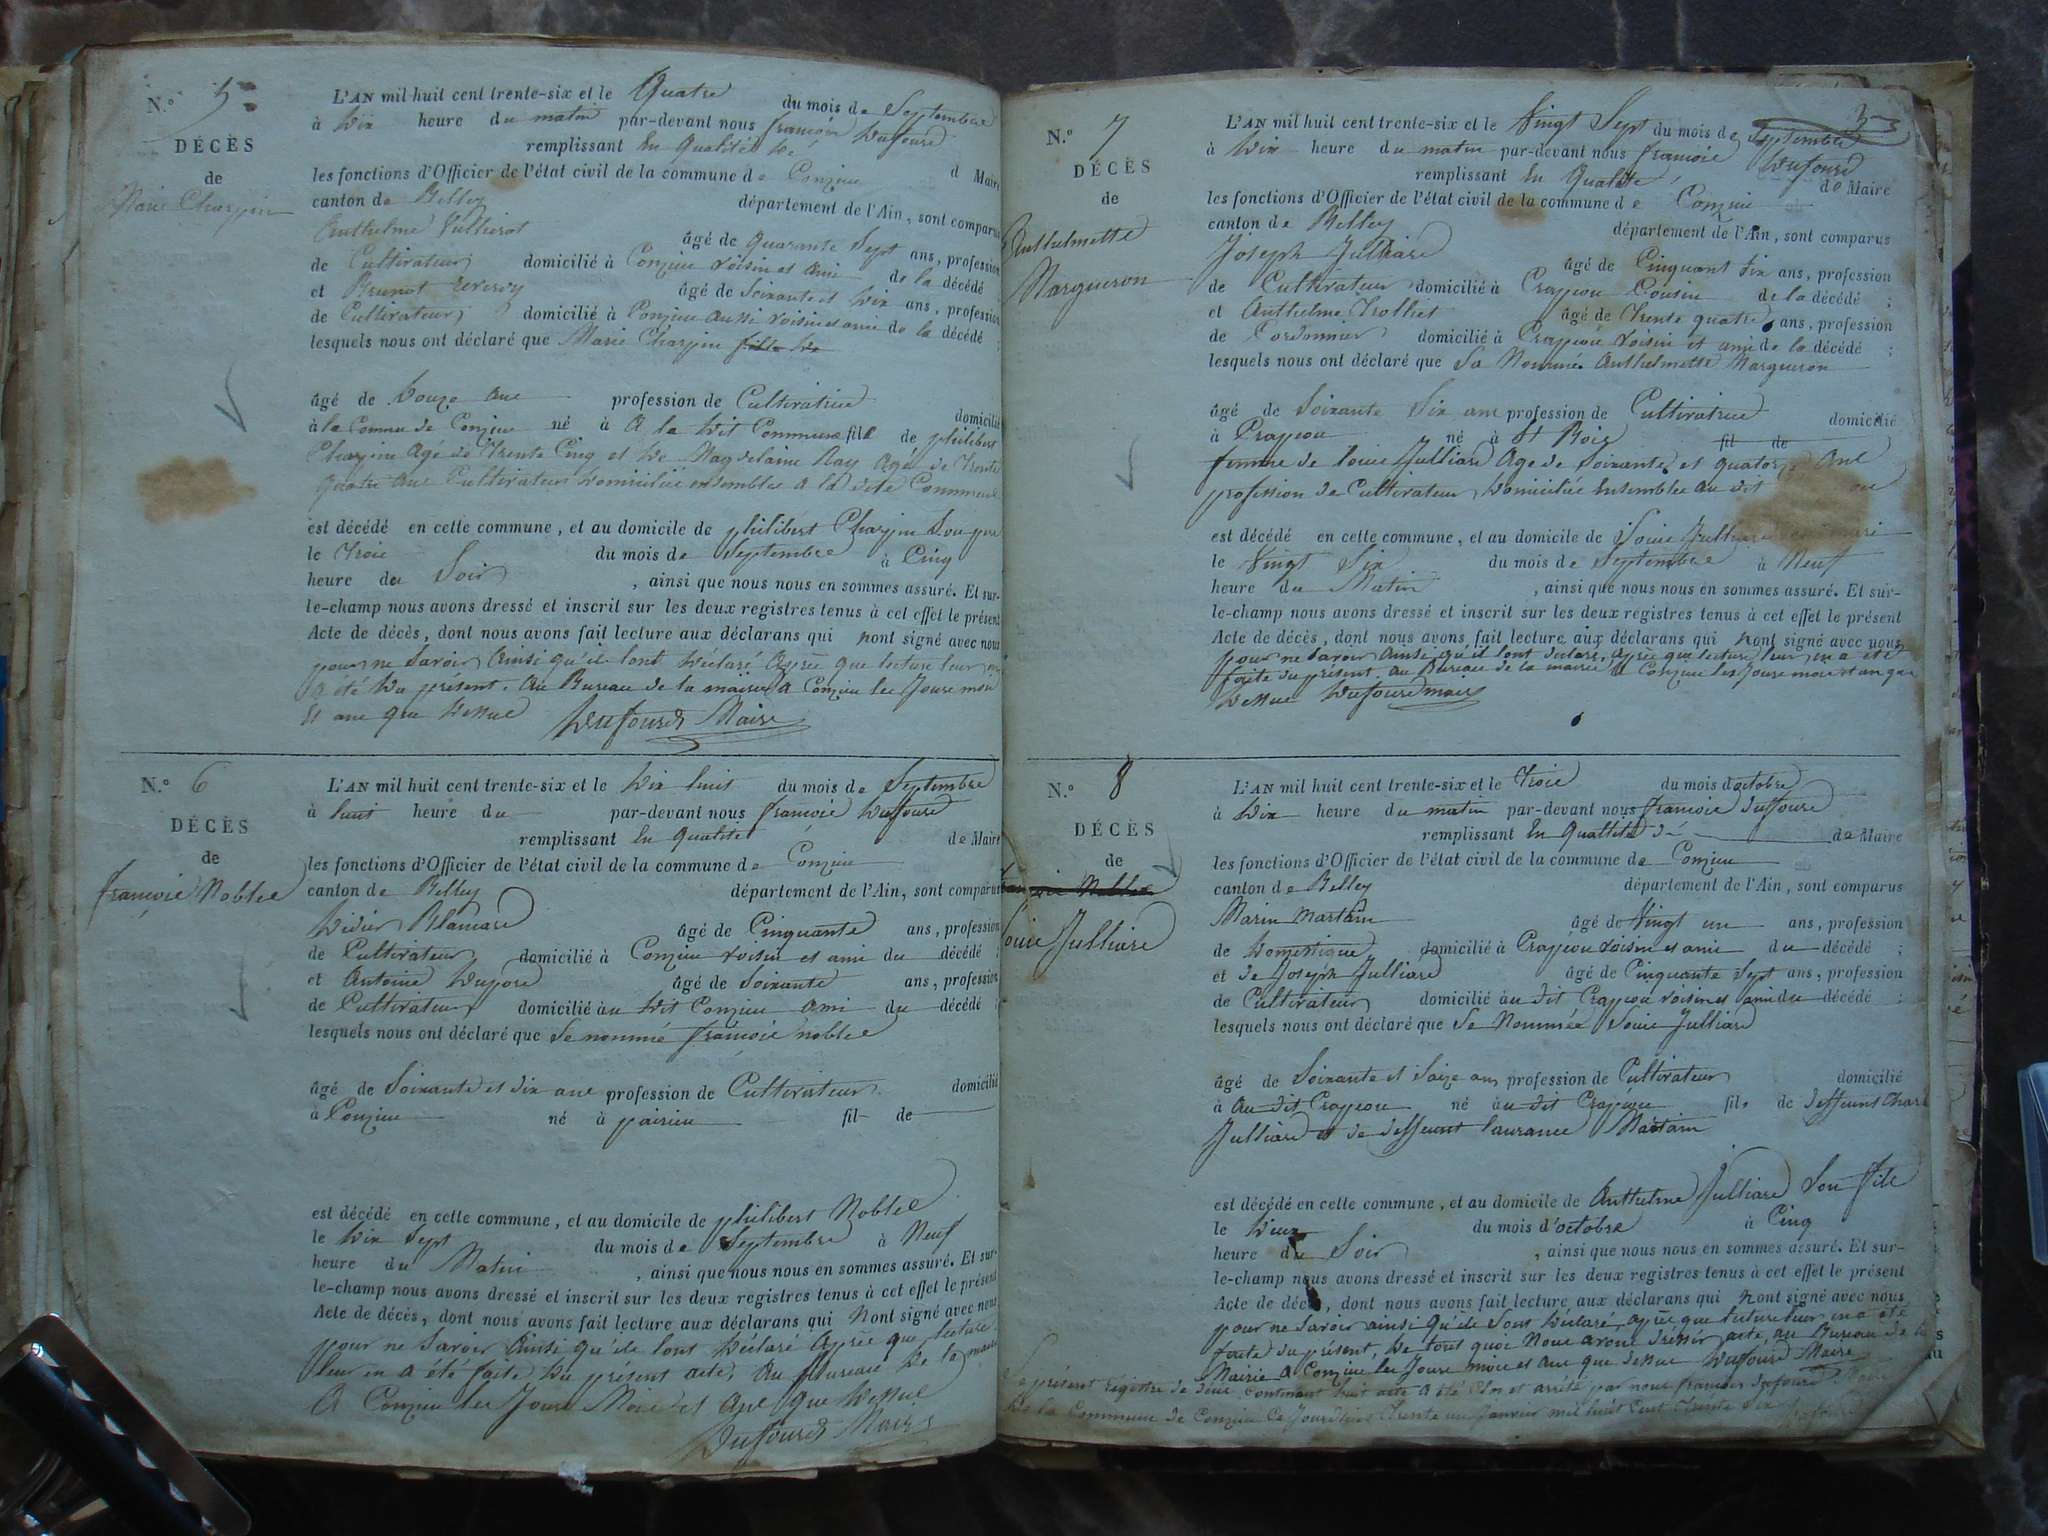 N.º 5
DÉCÈS
de
Marie Charpin
L'AN mil huit cent trente-six et le Quatre du mois de Septembre
à Dix heure du matin par-devant nous françois Dufourd
remplissant En Qualité de d Maire
les fonctions d'Officier de l'état civil de la commune de Conzieu
canton de Belley département de l'Ain, sont comparus
Anthelme Vullierot âgé de Quarante Sept ans, profession
de Cultivateur domicilié à Conzieu voisin et ami de la décédé ;
et Brunot âgé de Soixante et Dix ans, profession
de Cultivateur domicilié à Conzieu aussi voisin et ami de la décédé ;
lesquels nous ont déclaré que Marie Charpin fille de
âgé de Douze ans profession de Cultivatrice domicilié
à la Commu de Conzieu né à A la Dit Commune fille de philibert
Charpin Agé de Trente Cinq et De Magdelaine Ray Agé de Trente
quatre ans Cultivateurs Domiciliée ensembles a la dite Commune
est décédé en cette commune, et au domicile de philibert Charpin Son pere
le Trois du mois de Septembre à Cinq
heure du Soir, ainsi que nous nous en sommes assuré. Et sur-
le-champ nous avons dressé et inscrit sur les deux registres tenus à cet effet le présent
Acte de décès, dont nous avons fait lecture aux déclarans qui nont signé avec nous
pour ne Savoir Ainsi qu'ils lont Déclaré Après que lecture leur en
a été Du présent. Au Bureau de la mairie A Conzieu les Jours mois
Et ans que Dessus Dufourd Maire
N.º 6
DÉCÈS
de
francois Noblet
L'AN mil huit cent trente-six et le Dix huit du mois de Septembre
à huit heure du par-devant nous francois Dufourd
remplissant En Qualité de Maire
les fonctions d'Officier de l'état civil de la commune de Conzieu
canton de Belley département de l'Ain, sont comparus
Didier Blamard âgé de Cinquante ans, profession
de Cultivateur domicilié à Conzieu voisin et ami du décédé ;
et Antoine Duport âgé de Soixante ans, profession
de Cultivateur domicilié au Dit Conzieu ami du décédé ;
lesquels nous ont déclaré que Le nommé francois noblet
âgé de Soixante et dix ans profession de Cultivateur domicilié
à Conzieu né à peirieu fil de
est décédé en cette commune, et au domicile de philibert Noblet
le Dix Sept du mois de Septembre à Neuf
heure du Matin, ainsi que nous nous en sommes assuré. Et sur-
le-champ nous avons dressé et inscrit sur les deux registres tenus à cet effet le présent
Acte de décès, dont nous avons fait lecture aux déclarans qui Nont signé avec nous
pour ne Savoir Ainsi qu'ils lont Déclaré Après que lecture
leur en a été faite Du présent acte, Au Bureau De la mairie
A Conzieu les Jours Mois et Ans que Dessus
Dufourd Maire
3
N.º 7
DÉCÈS
de
Anthelmette
Margueron
L'AN mil huit cent trente-six et le Vingt Sept du mois de Septembre
à Dix heure du matin par-devant nous francois Dufourd
remplissant En Qualité de Maire
les fonctions d'Officier de l'état civil de la commune de Conzieu
canton de Belley département de l'Ain, sont comparus
Joseph Julliard âgé de Cinquant Six ans, profession
de Cultivateur domicilié à Crapeou Cousin de la décédé ;
et Anthelme Trolliet âgé de Trente quatre ans, profession
de Cordonnier domicilié à Crapeou voisin et ami de la décédé ;
lesquels nous ont déclaré que La Nommé Anthelmette Margueron
âgé de Soixante Six ans profession de Cultivatrice domicilié
à Crapeou né à St Bois fil de
femme de Louis Julliard Age de Soixante et quatorze Ans
profession de Cultivateur Domiciliée Ensembles au dit
est décédé en cette commune, et au domicile de Louis Julliard mari
le Vingt Six du mois de Septembre à Neuf
heure du Matin, ainsi que nous nous en sommes assuré. Et sur-
le-champ nous avons dressé et inscrit sur les deux registres tenus à cet effet le présent
Acte de décès, dont nous avons fait lecture aux déclarans qui nont signé avec nous
pour ne Savoir Ainsi qu'il lont declaré, Après que lecture leur en a été
faite du présent au Bureau de la mairie A Conzieu les Jours mois et an que
Dessus Dufourd maire
N.º 8
DÉCÈS
de
francois Noblet
Louis Julliard
L'AN mil huit cent trente-six et le Trois du mois d'octobre
à Dix heure du matin par-devant nous francois Duffourd
remplissant En Qualité de de Maire
les fonctions d'Officier de l'état civil de la commune de Conzieu
canton de Belley département de l'Ain, sont comparus
Marin Martain âgé de Vingt un ans, profession
de Domestique, domicilié à Crapeou voisin et ami du décédé ;
et de Joseph Julliard âgé de Cinquante Sept ans, profession
de Cultivateur domicilié au dit Crapeou voisin et ami du décédé ;
lesquels nous ont déclaré que Le Nommée Louis Julliard
âgé de Soixante et Saize ans profession de Cultivateur domicilié
à Au dit Crapeou né au dit Crapeou fils de deffeunt Char
Julliard et de deffeunt Laurance Martain
est décédé en cette commune, et au domicile de Anthelme Julliard Son fils
le Deux du mois d'octobre à Cinq
heure du Soir, ainsi que nous nous en sommes assuré. Et sur-
le-champ nous avons dressé et inscrit sur les deux registres tenus à cet effet le présent
Acte de décès, dont nous avons fait lecture aux déclarans qui nont signé avec nous
pour ne Savoir ainsi qu'ils Lont Déclaré, après que lecture leur en a été
faite du présent, De tout quoi Nous avons dressér acte, au Bureau de la
Mairie A Conzieu les Jours mois et ans que dessus Duffourd Maire
Le présent registre de deux Contenant huit acte A été Clos et arrété par nous francois Dufourd Maire
De la Commune de Conzieu Ce Jourd'hui Trente un Janvier mil huit Cent Trente Six